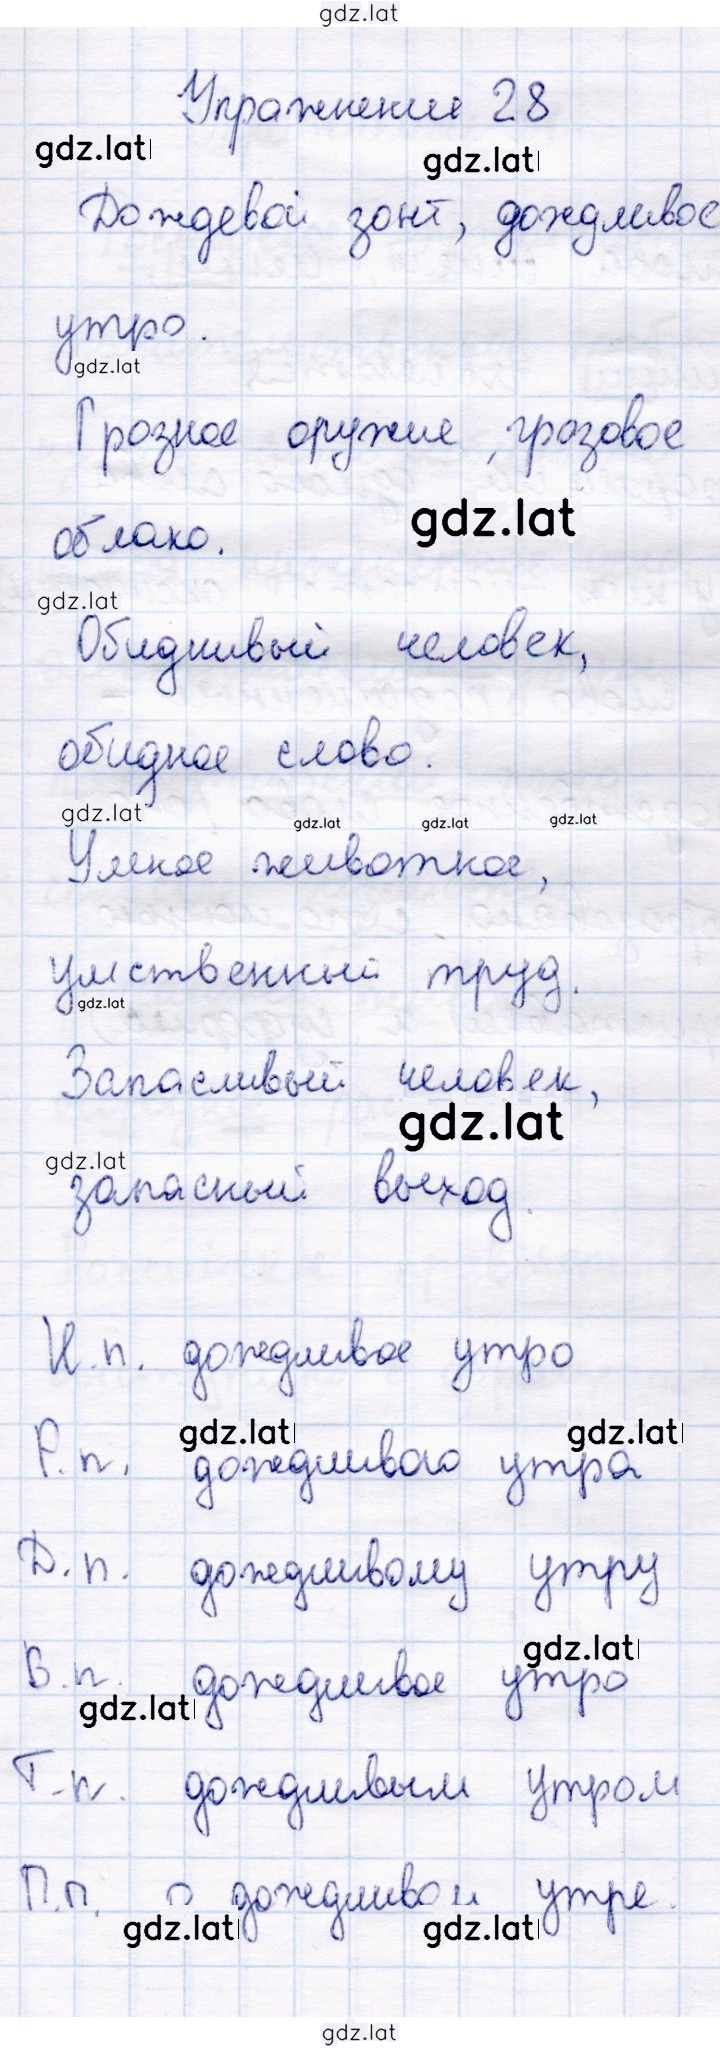 gdz.lat
Упражнение 28
gdz.lat gdz.lat
Дождевой зонт, дождливое
утро.
gdz.lat
Грозное оружие, грозовое
gdz.lat
облако.
gdz.lat
Обидчивый человек,
обидное слово.
gdz.lat gdz.lat gdz.lat gdz.lat
Умное животное,
умственный труд.
gdz.lat
Запасливый человек,
gdz.lat
gdz.lat
запасный выход.
И.п. дождливое утро
gdz.lat gdz.lat
Р.п. дождливого утра
Д.п. дождливому утру
gdz.lat
В.п. дождливое утро
gdz.lat
Т.п. дождливым утром
П.п. о дождливом утре.
gdz.lat gdz.lat
gdz.lat